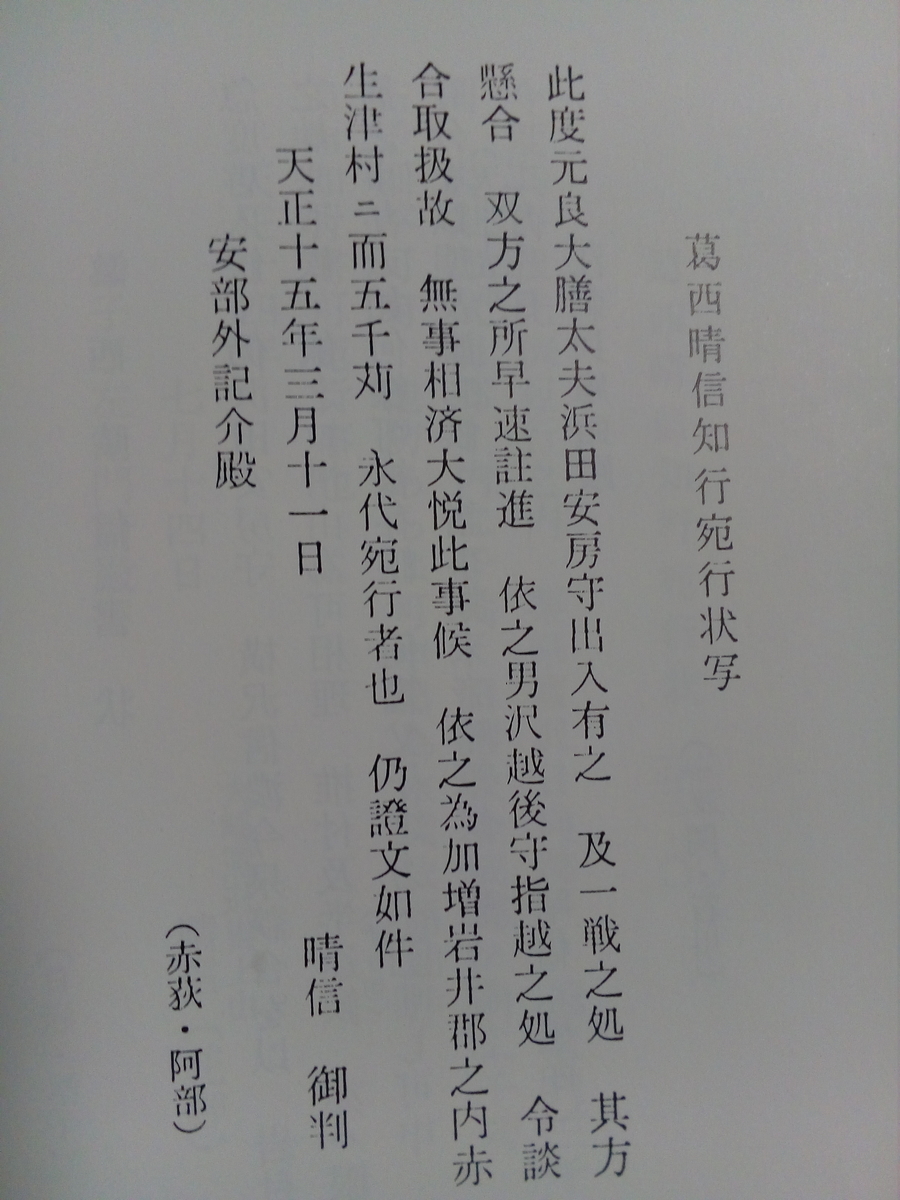 葛西晴信知行宛行状写
此度元良大膳太夫浜田安房守出入有之　及一戦之処　其方
懸合　双方之所早速註進　依之男沢越後守指越之処　令談
合取扱故　無事相済大悦此事候　依之為加増岩井郡之内赤
生津村ニ而五千苅　永代宛行者也　仍證文如件
天正十五年三月十一日
晴信　御判
安部外記介殿
（赤荻・阿部）